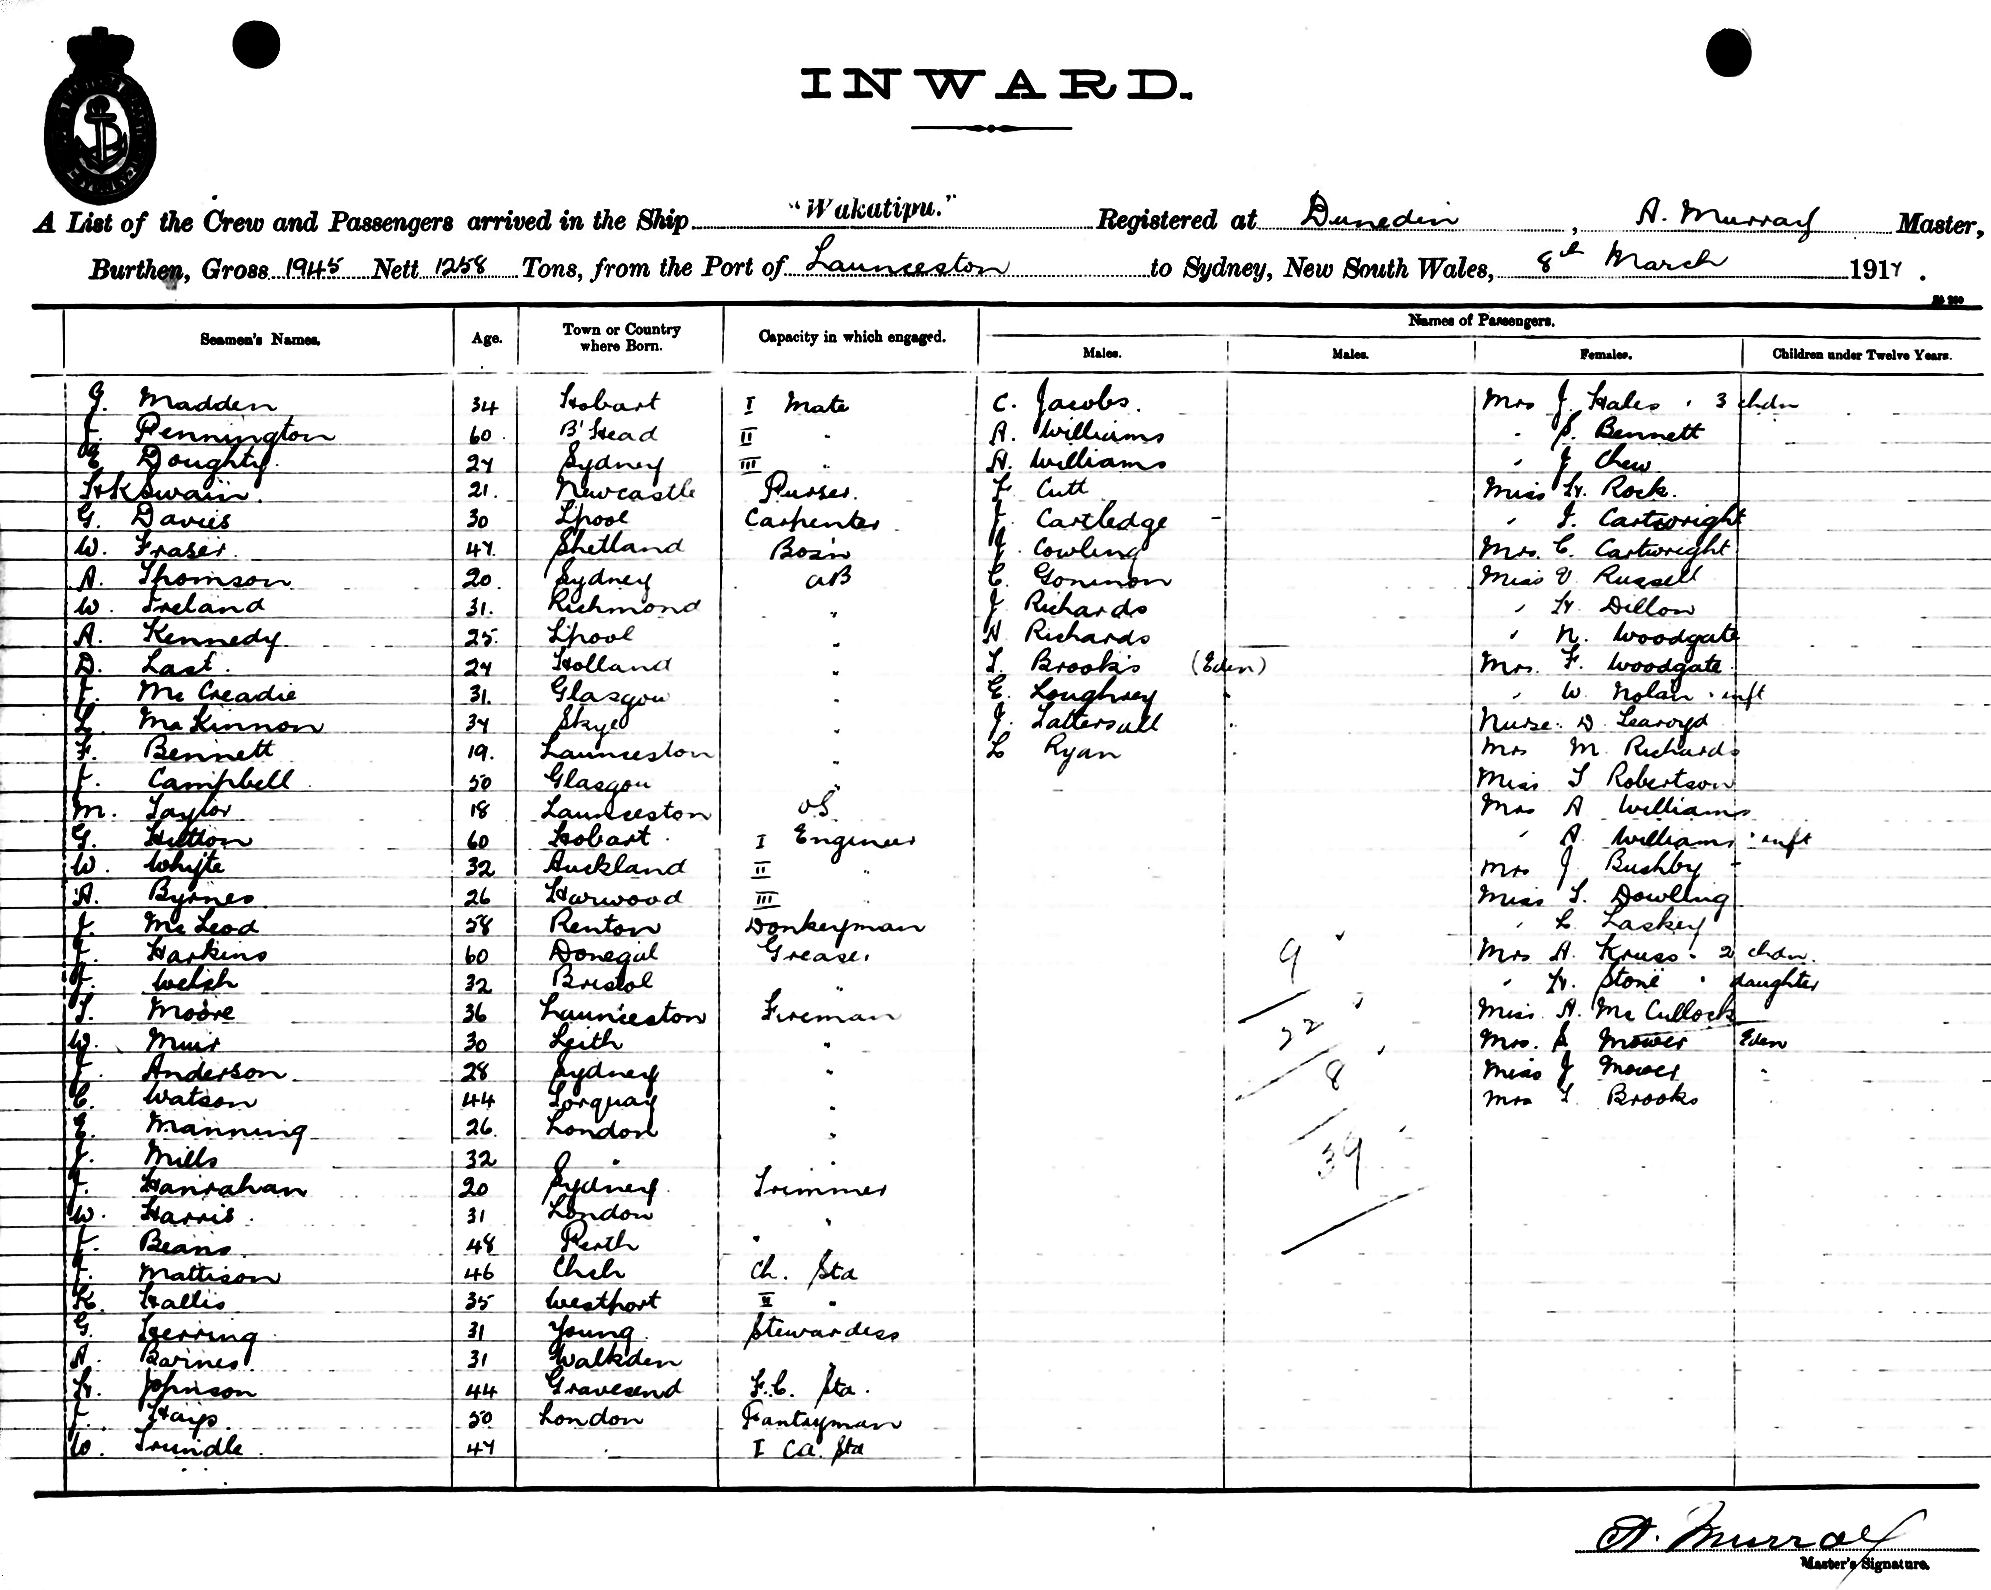 INWARD.
A List of the Crew and Passengers arrived in the Ship "Wakatipu." Registered at Dunedin, A. Murray Master,
Burthen, Gross 1945 Nett 1258 Tons, from the Port of Launceston to Sydney, New South Wales, 8th March 1917.
Names of Passengers.
Seamen's Names. Age. Town or Country where Born. Capacity in which engaged. Males. Males. Females. Children under Twelve Years.
G. Madden 34 Hobart I Mate C. Jacobs. Mrs J. Hales . 3 chdn
J. Pennington 60 B'Head II " A. Williams " S. Bennett
E. Doughty. 27 Sydney III " A. Williams " J Chew
H K Swain. 21. Newcastle Purser. F Cutt Miss H. Rock.
G. Davies 30 L'pool Carpenter J. Cartledge - " I. Cartwright
W. Fraser. 47. Shetland Bos'n J. Cowling Mrs. C. Cartwright
A. Thomson 20. Sydney AB C. Goninon Miss V Russell
W. Ireland 31. Richmond " J Richards " H. Dillon
A. Kennedy 25. L'pool " N Richards " N. Woodgate
D. Last. 27 Holland " T. Brooks (Eden) Mrs. F. Woodgate
J. McCreadie 31. Glasgow " E. Loughrey " " W. Nolan . inft
L. McKinnon 37 Skye " J. Tattersall " Nurse. D. Learoyd
F. Bennett 19. Launceston " L Ryan " Mrs M. Richards
J. Campbell 50 Glasgow " Miss T Robertson
M. Taylor 18 Launceston O.S. Mrs A Williams
G. Hutton 60 Hobart I Engineer " A. Williams . inft
W. Whyte 32 Auckland II " Mrs J Bushby -
A. Byrnes 26 Harwood III " Miss T. Dowling
J. McLeod 58 Renton Donkeyman " L Laskey
J. Harkins 60 Donegal Greaser 9 Mrs A. Kruss . 2 chdn.
J. Welsh 32 Bristol " " H. Stone . daughter
T. Moore 36 Launceston Fireman 22 Miss A. McCullock
W. Muir 30 Leith " Mrs. S Mower Eden
J. Anderson 28 Sydney " 8 Miss J Mower "
C. Watson 44 Torquay " Mrs T. Brooks
E. Manning 26. London "
J. Mills 32 " " 39
J. Hanrahan 20 Sydney Trimmer
W. Harris. 31 London "
J. Beans. 48 Perth "
J. Mattison 46 Chch Ch. Std
K. Hallis 35 Westport II "
G. Herring 31 Young Stewardess
A. Barnes. 31 Walkden "
H. Johnson 44 Gravesend F.C. Std.
J. Hays 50. London Pantryman
W. Trundle. 47 " I CA. Std
A. Murray
Master's Signature.